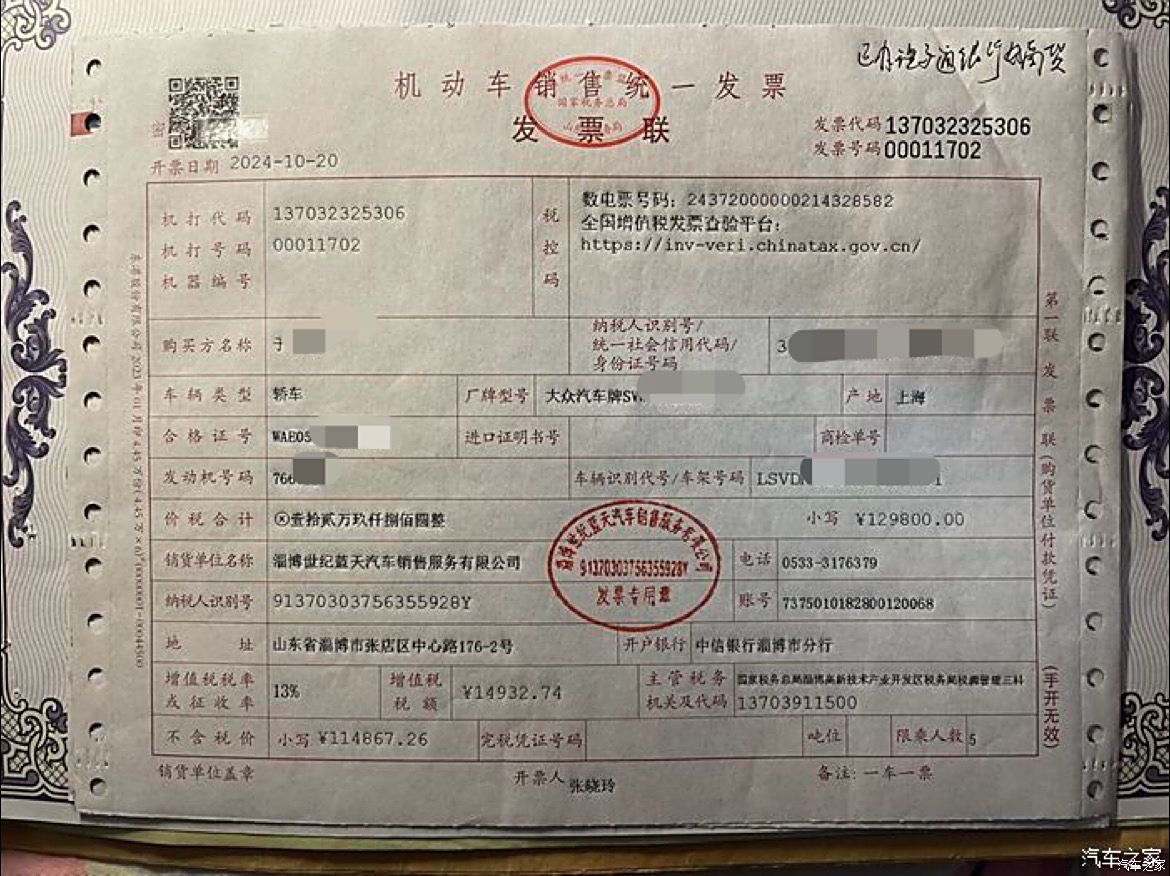 机动车销售统一发票
发票联
发票代码 137032325306
发票号码 00011702
开票日期 2024-10-20
机打代码 137032325306
机打号码 00011702
机器编号
税控码
数电票号码：24372000000214328582
全国增值税发票查验平台：
https://inv-veri.chinatax.gov.cn/
购买方名称 于
纳税人识别号/
统一社会信用代码/
身份证号码 3
车辆类型 轿车 厂牌型号 大众汽车牌SV 产地 上海
合格证号 WAE05 进口证明书号 商检单号
发动机号码 766 车辆识别代号/车架号码 LSVD
价税合计 ⓧ壹拾贰万玖仟捌佰圆整 小写 ¥129800.00
销货单位名称 淄博世纪蓝天汽车销售服务有限公司 电话 0533-3176379
纳税人识别号 91370303756355928Y 账号 7375010182800120068
地址 山东省淄博市张店区中心路176-2号 开户银行 中信银行淄博市分行
增值税税率
或征收率 13%
增值税
税额 ¥14932.74
主管税务
机关及代码
国家税务总局淄博高新技术产业开发区税务局税源管理三科
13703911500
不含税价 小写 ¥114867.26 完税凭证号码 吨位 限乘人数 5
销货单位盖章 开票人 张晓玲 备注：一车一票
淄博世纪蓝天汽车销售服务有限公司
91370303756355928Y
发票专用章
国家税务总局
第一联 发票联（购货单位付款凭证）
（手开无效）
汽车之家
汽车之家